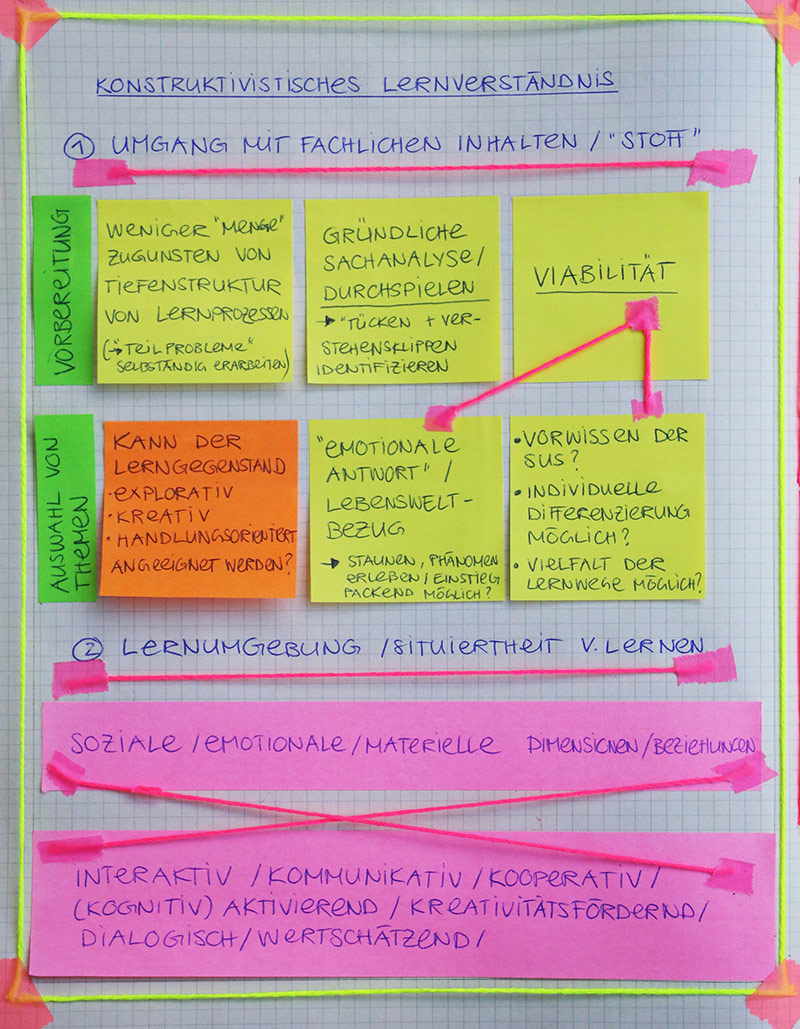 KONSTRUKTIVISTISCHES LERNVERSTÄNDNIS
① UMGANG MIT FACHLICHEN INHALTEN / "STOFF"
VORBEREITUNG
WENIGER "MENGE"
ZUGUNSTEN VON
TIEFENSTRUKTUR
VON LERNPROZESSEN
(→"TEILPROBLEME"
SELBSTÄNDIG ERARBEITEN)
GRÜNDLICHE
SACHANALYSE/
DURCHSPIELEN
→ "TÜCKEN + VER-
STEHENSKLIPPEN
IDENTIFIZIEREN
VIABILITÄT
AUSWAHL VON
THEMEN
KANN DER
LERNGEGENSTAND
• EXPLORATIV
• KREATIV
• HANDLUNGSORIENTIERT
ANGEEIGNET WERDEN?
"EMOTIONALE
ANTWORT" /
LEBENSWELT-
BEZUG
→ STAUNEN, PHÄNOMEN
ERLEBEN / EINSTIEG
PACKEND MÖGLICH?
• VORWISSEN DER
SUS?
• INDIVIDUELLE
DIFFERENZIERUNG
MÖGLICH?
• VIELFALT DER
LERNWEGE MÖGLICH?
② LERNUMGEBUNG / SITUIERTHEIT V. LERNEN
SOZIALE / EMOTIONALE / MATERIELLE DIMENSIONEN / BEZIEHUNGEN
INTERAKTIV / KOMMUNIKATIV / KOOPERATIV /
(KOGNITIV) AKTIVIEREND / KREATIVITÄTSFÖRDERND /
DIALOGISCH / WERTSCHÄTZEND /